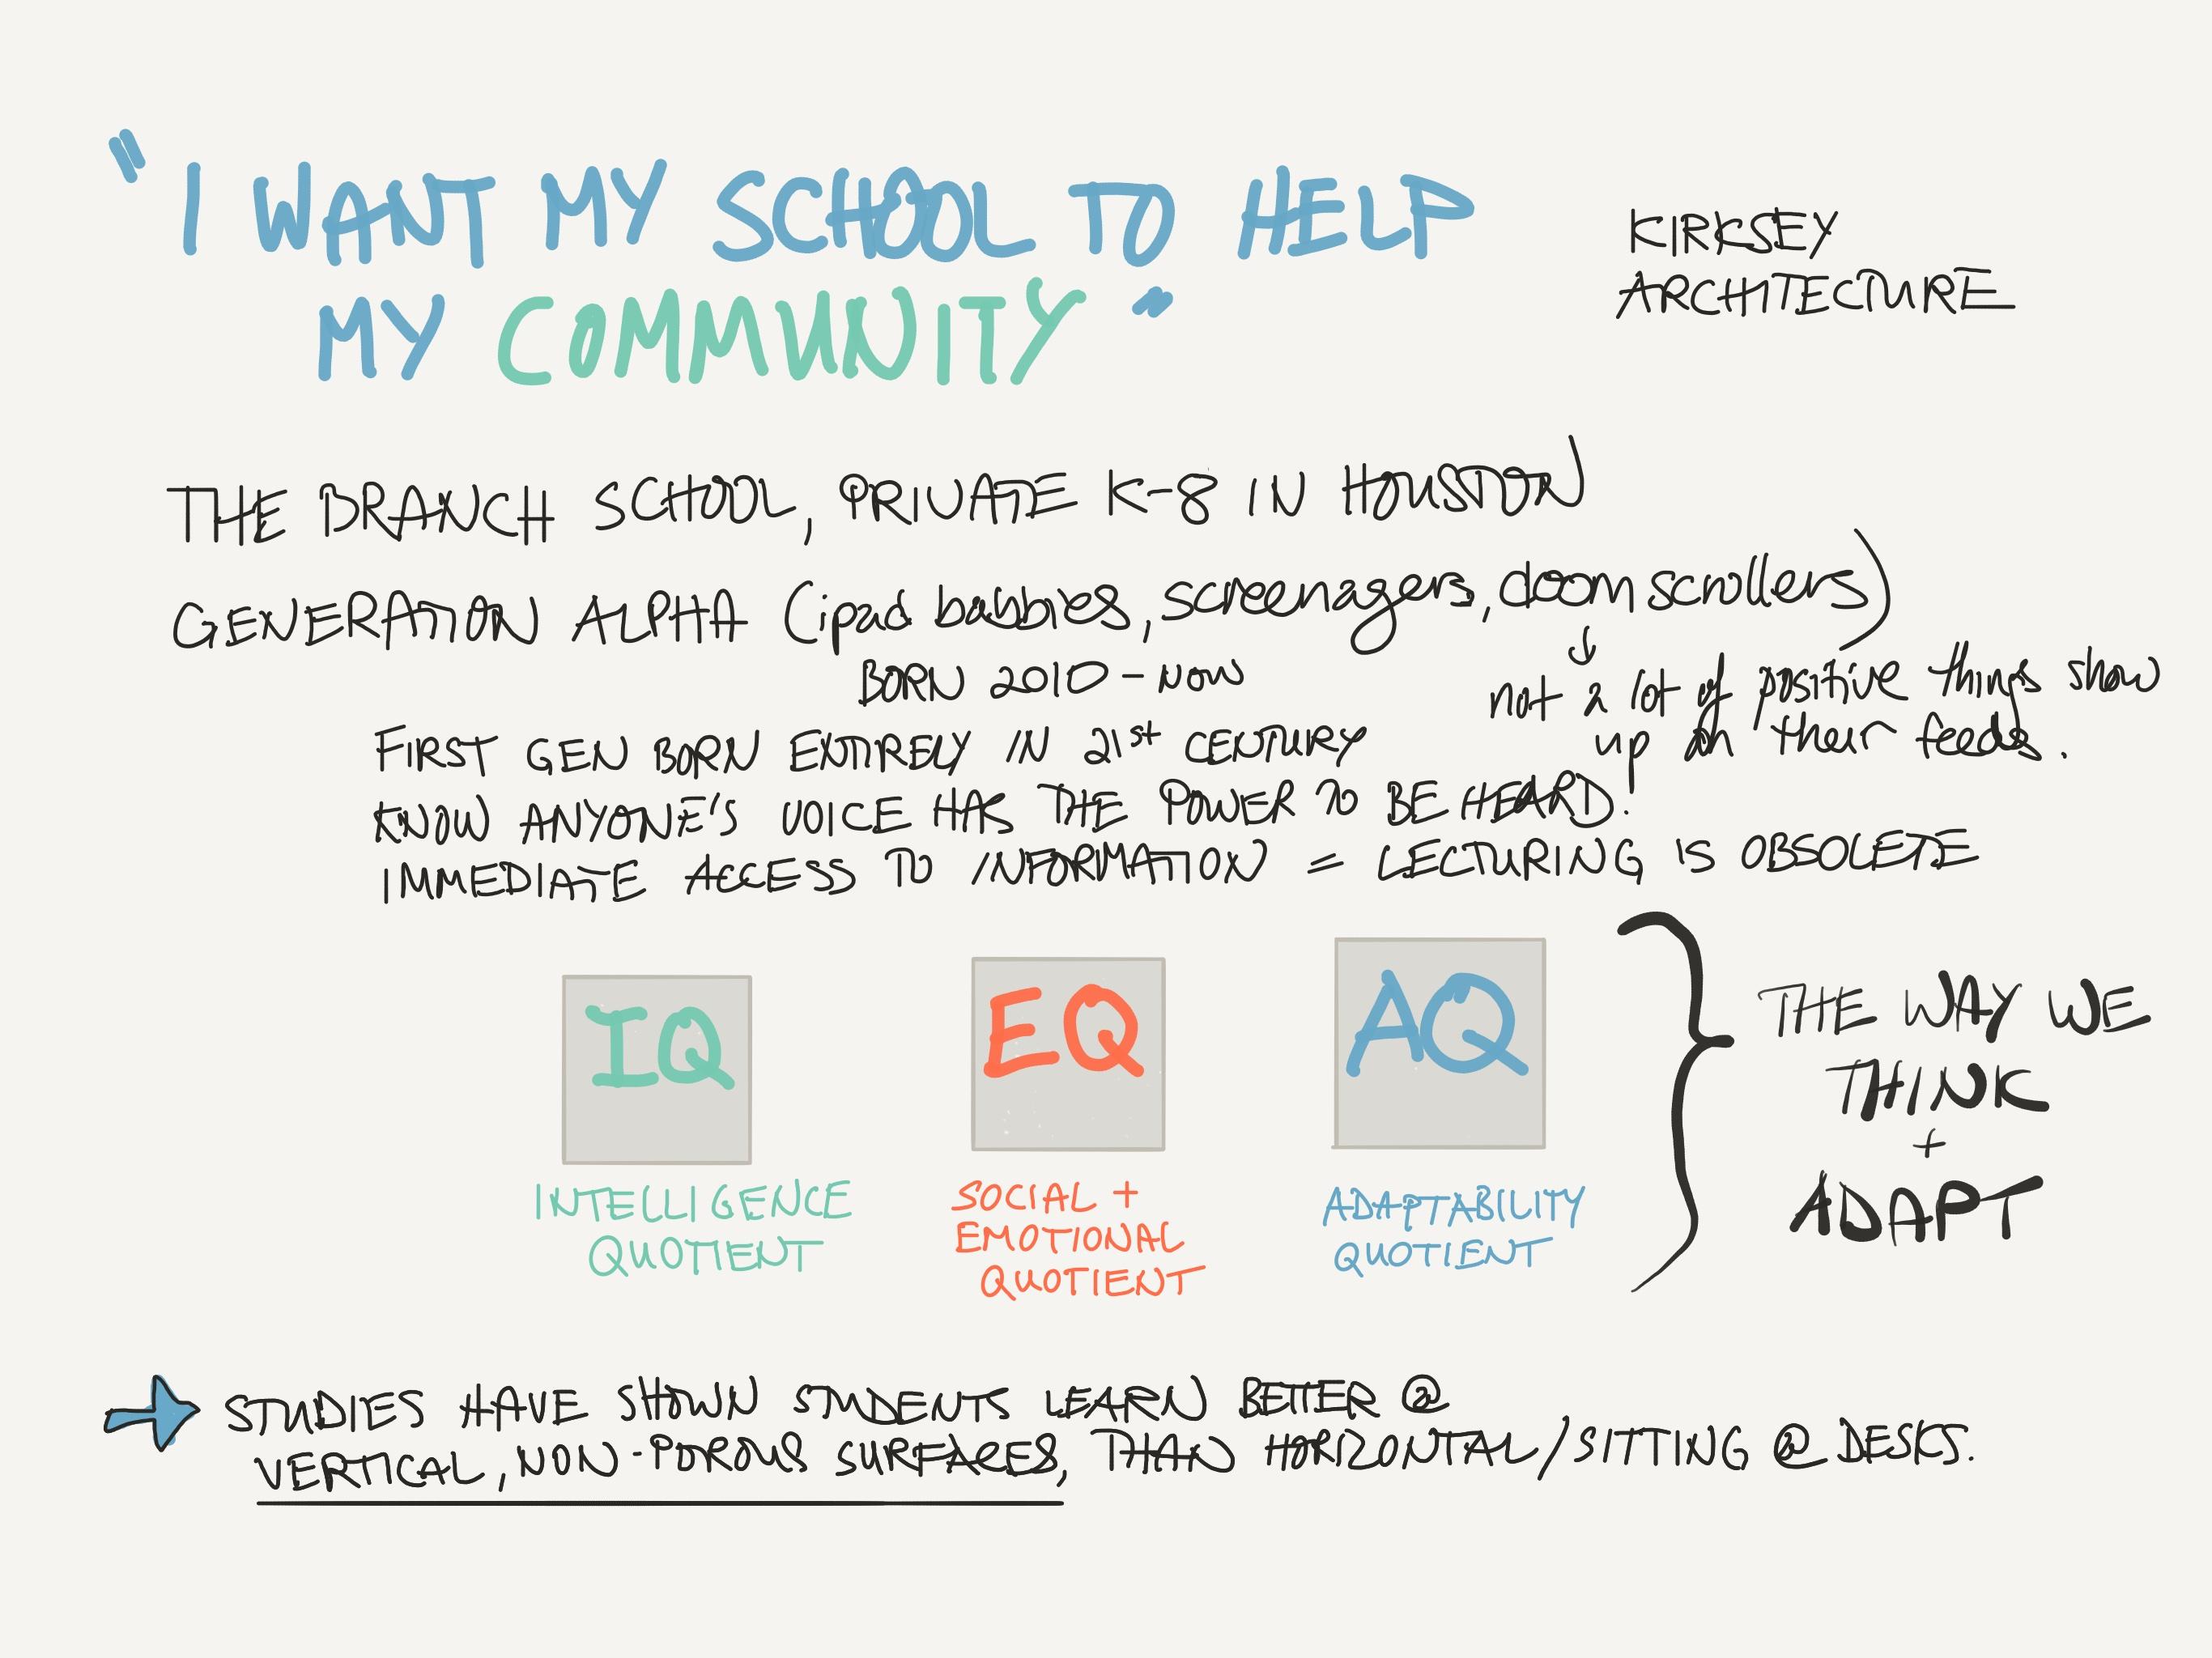 "I WANT MY SCHOOL TO HELP
MY COMMUNITY"
KIRKSEY
ARCHITECTURE
THE BRANCH SCHOOL, PRIVATE K-8 IN HOUSTON
GENERATION ALPHA (ipad babies, screenagers, doom scrollers)
BORN 2010 - NOW
not a lot of positive things show
up on their feeds.
FIRST GEN BORN ENTIRELY IN 21st CENTURY
KNOW ANYONE'S VOICE HAS THE POWER TO BE HEARD!
IMMEDIATE ACCESS TO INFORMATION = LECTURING IS OBSOLETE
IQ
EQ
AQ
INTELLIGENCE
QUOTIENT
SOCIAL +
EMOTIONAL
QUOTIENT
ADAPTABILITY
QUOTIENT
THE WAY WE
THINK
+
ADAPT
STUDIES HAVE SHOWN STUDENTS LEARN BETTER @
VERTICAL, NON-POROUS SURFACES, THAN HORIZONTAL/SITTING @ DESKS.